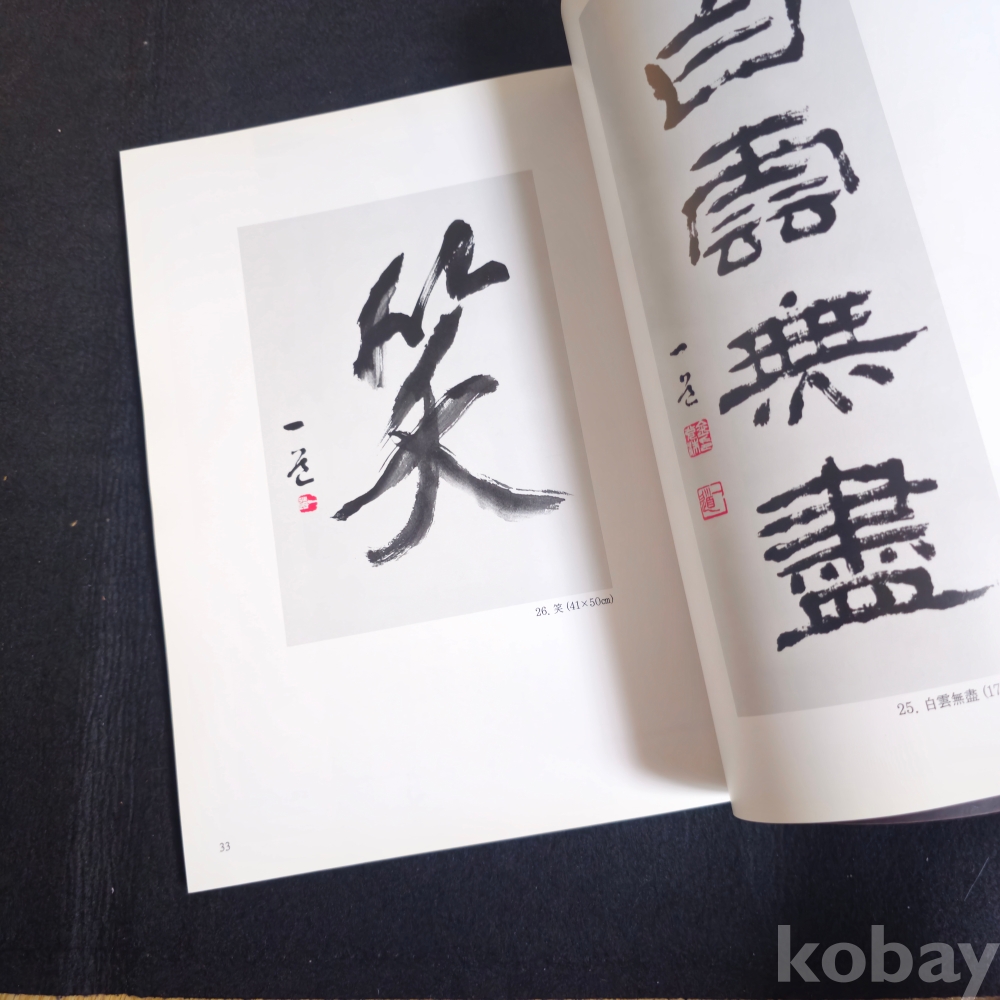 笑
26. 笑 (41×50㎝)
33
白雲無盡
25. 白雲無盡 (17
kobay